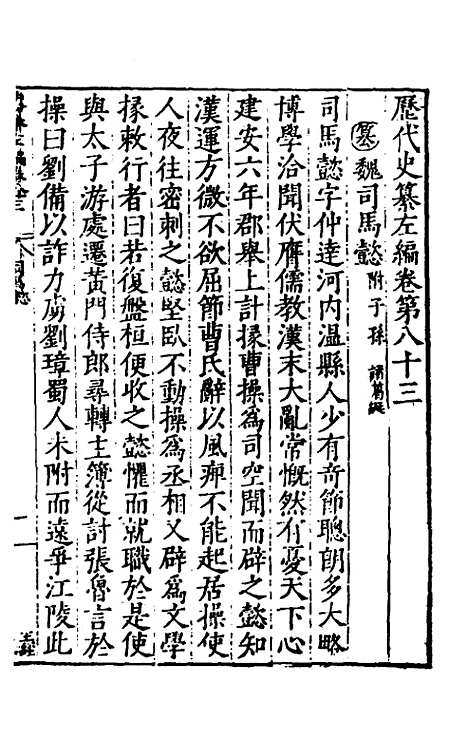 歷代史纂左編卷第八十三
篡 魏司馬懿 附子孫 諸葛誕
司馬懿字仲達河內温縣人少有奇節聰朗多大略
博學洽聞伏膺儒教漢末大亂常慨然有憂天下心
建安六年郡舉上計掾曹操為司空聞而辟之懿知
漢運方微不欲屈節曹氏辭以風痺不能起居操使
人夜往密刺之懿堅臥不動操為丞相又辟為文學
掾敕行者曰若復盤桓便收之懿懼而就職於是使
與太子游處遷黃門侍郎尋轉主簿從討張魯言於
操曰劉備以詐力虜劉璋蜀人未附而遠爭江陵此